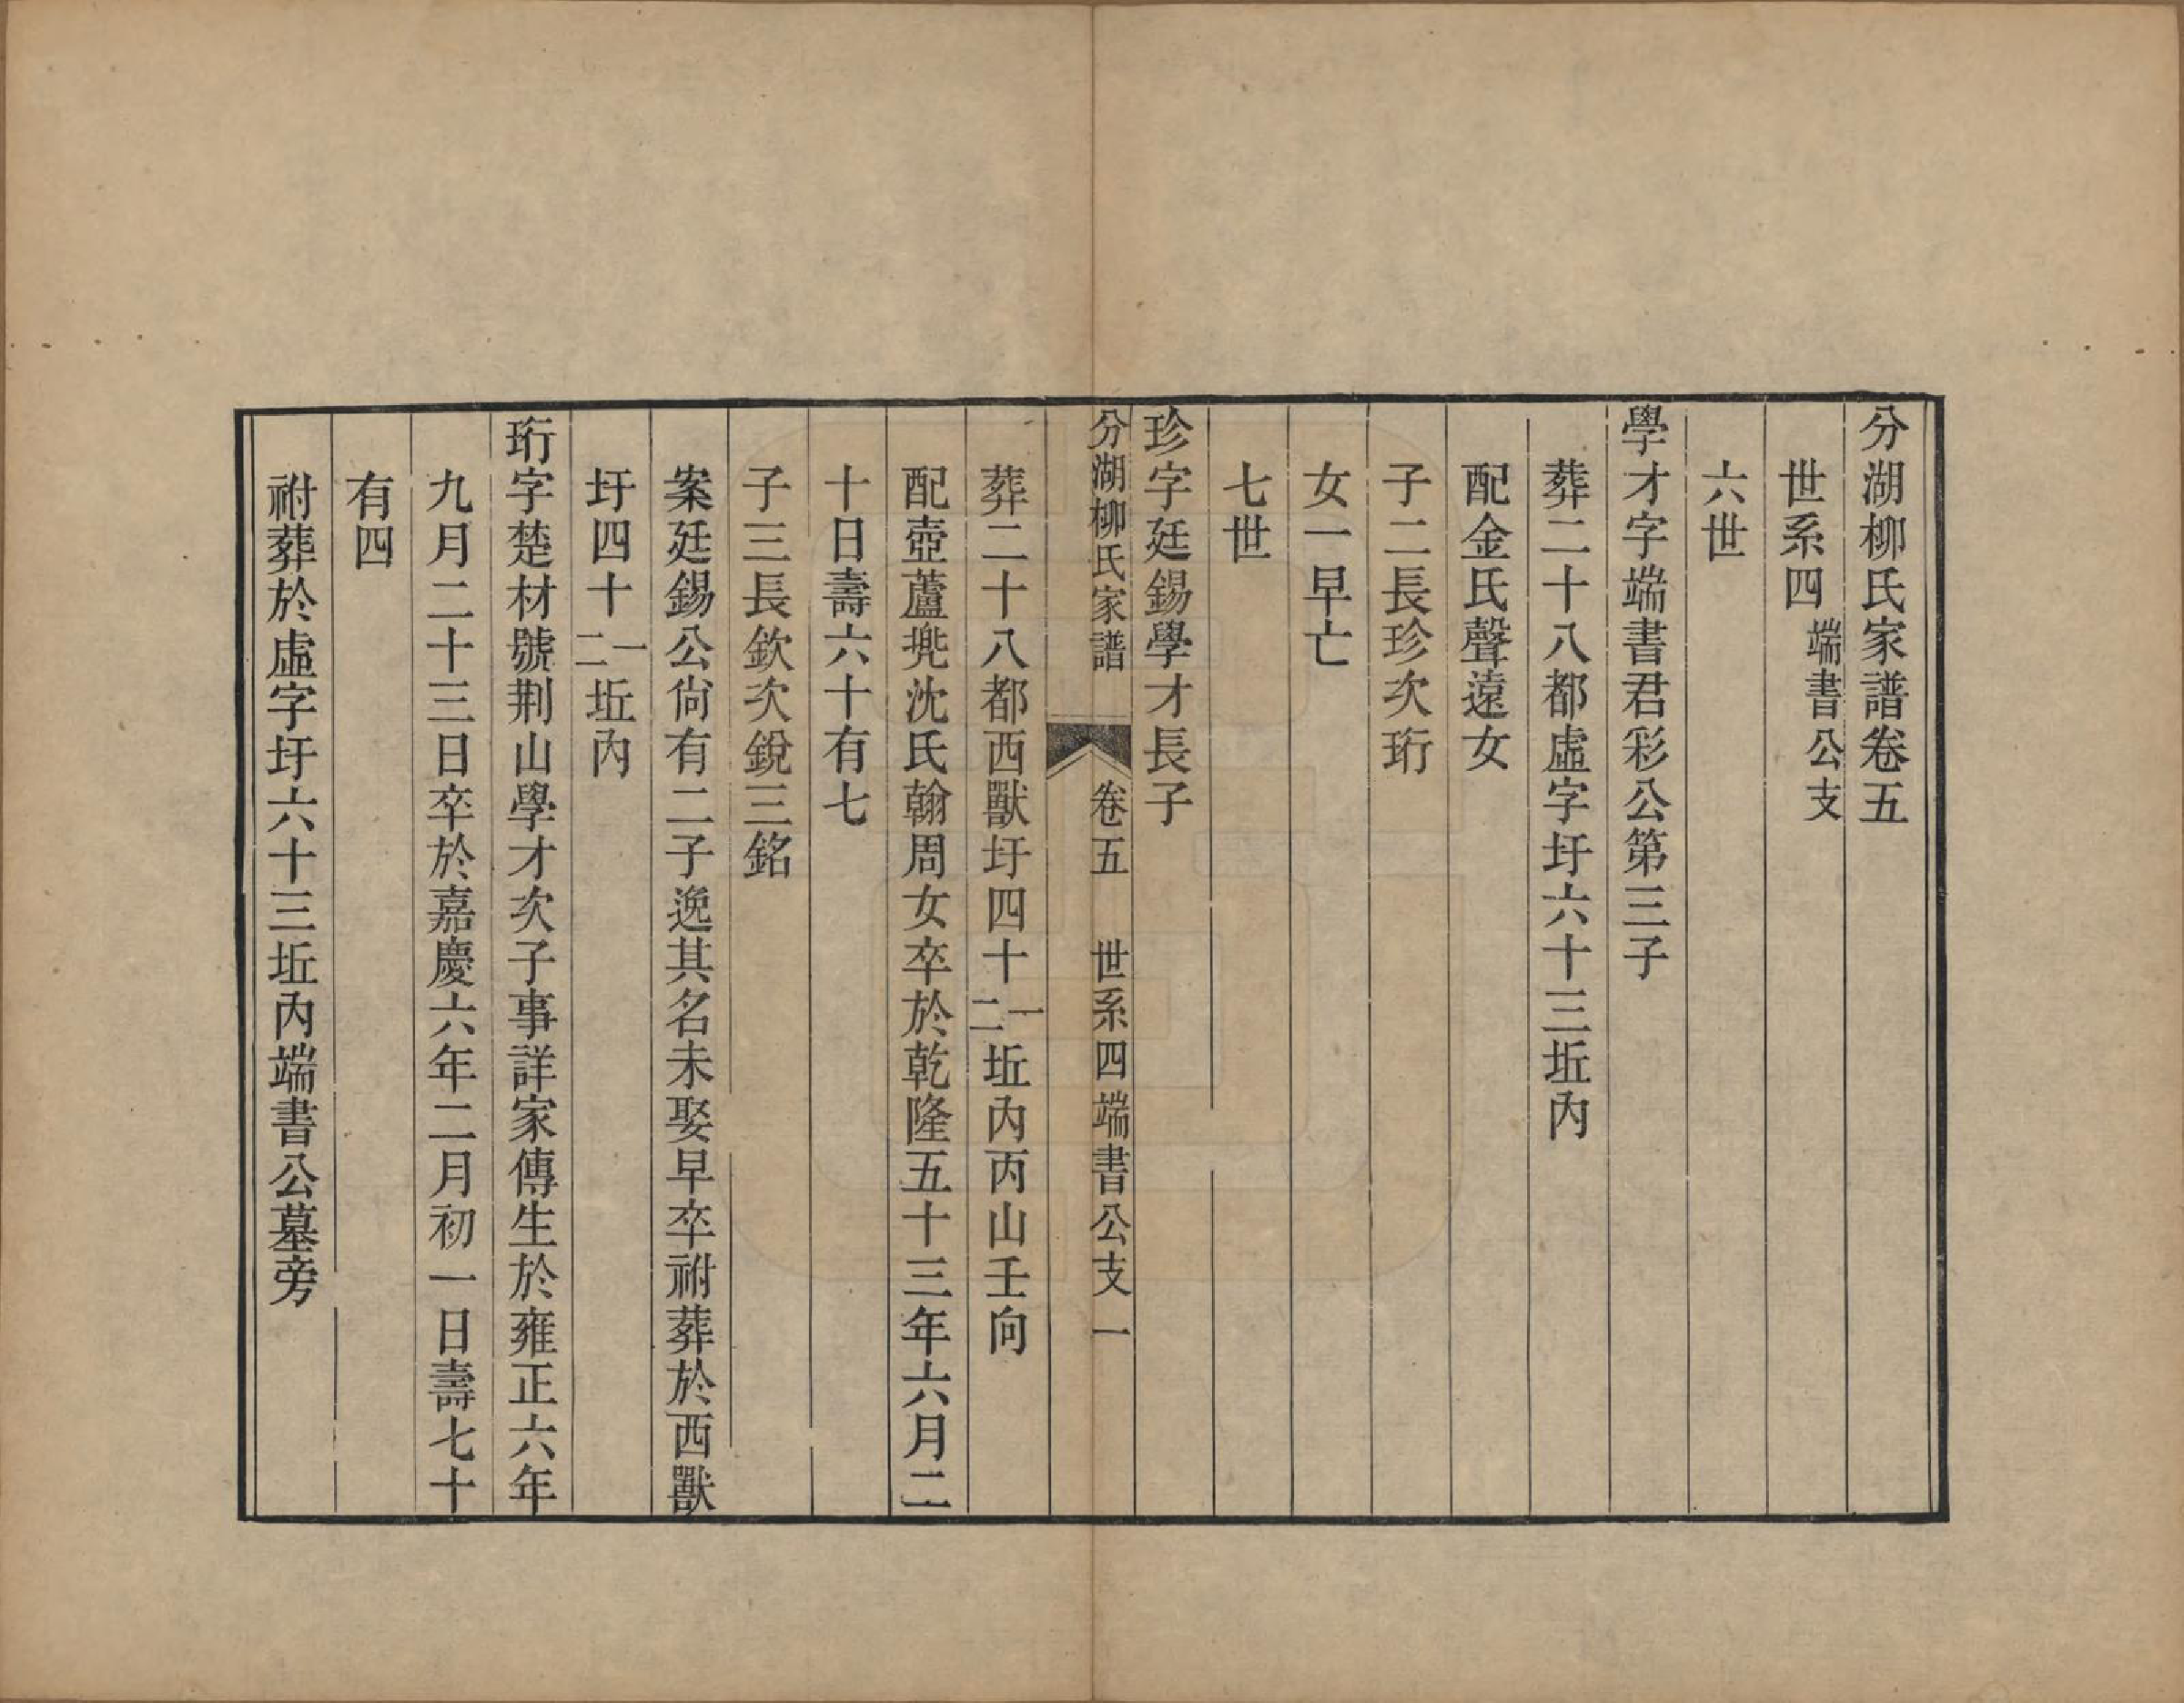 分湖柳氏家譜卷五
世系四 端書公支
六世
學才字端書君彩公第三子
葬二十八都虛字圩六十三坵內
配金氏聲遠女
子二長珍次珩
女一早亡
七世
珍字廷錫學才長子
分湖柳氏家譜 卷五 世系四端書公支 一
葬二十八都西獸圩四十一二坵內丙山壬向
配壺蘆兠沈氏翰周女卒於乾隆五十三年六月二
十日壽六十有七
子三長欽次銳三銘
案廷錫公尙有二子逸其名未娶早卒祔葬於西獸
圩四十一二坵內
珩字楚材號荆山學才次子事詳家傳生於雍正六年
九月二十三日卒於嘉慶六年二月初一日壽七十
有四
祔葬於虛字圩六十三坵內端書公墓旁